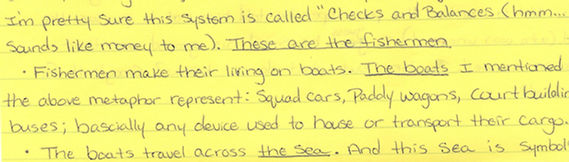 I'm pretty sure this system is called "Checks and Balances (hmm...
Sounds like money to me). These are the fishermen.
• Fishermen make their living on boats. The boats I mentioned
the above metaphor represent: Squad cars, Paddy wagons, Court buildin
buses; bascially any device used to house or transport their cargo.
• The boats travel across the sea. And this sea is symbol